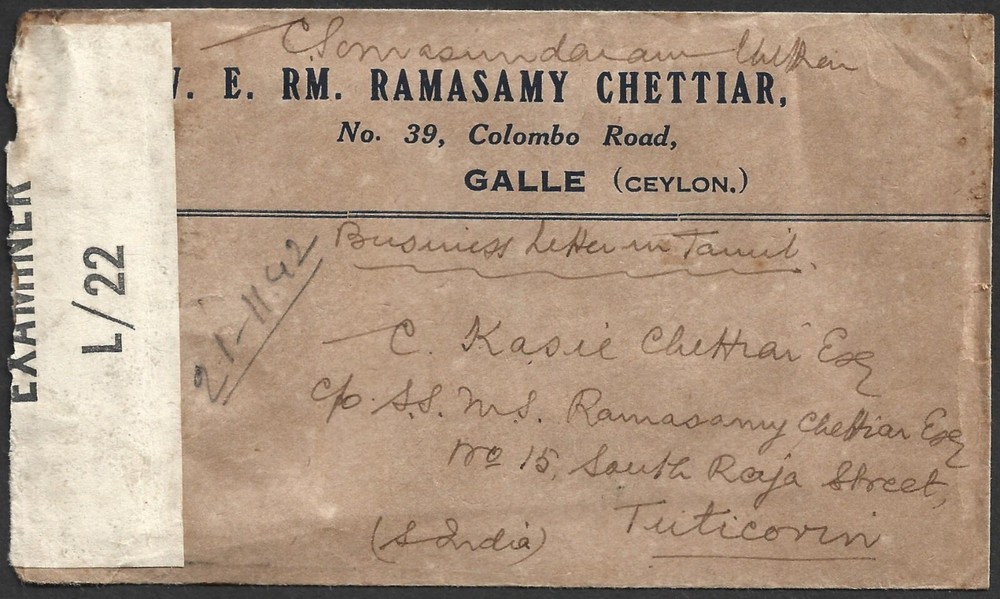 C Somasundaram Chettiar
. E. RM. RAMASAMY CHETTIAR,
No. 39, Colombo Road,
GALLE (CEYLON.)
Business Letter in Tamil.
21-11-42
C. Kasie Chettiar Esq
c/o S.S. M.S. Ramasamy Chettiar Esq
No 15, South Raja Street,
Tuticorin
(S India)
EXAMINER
L/22